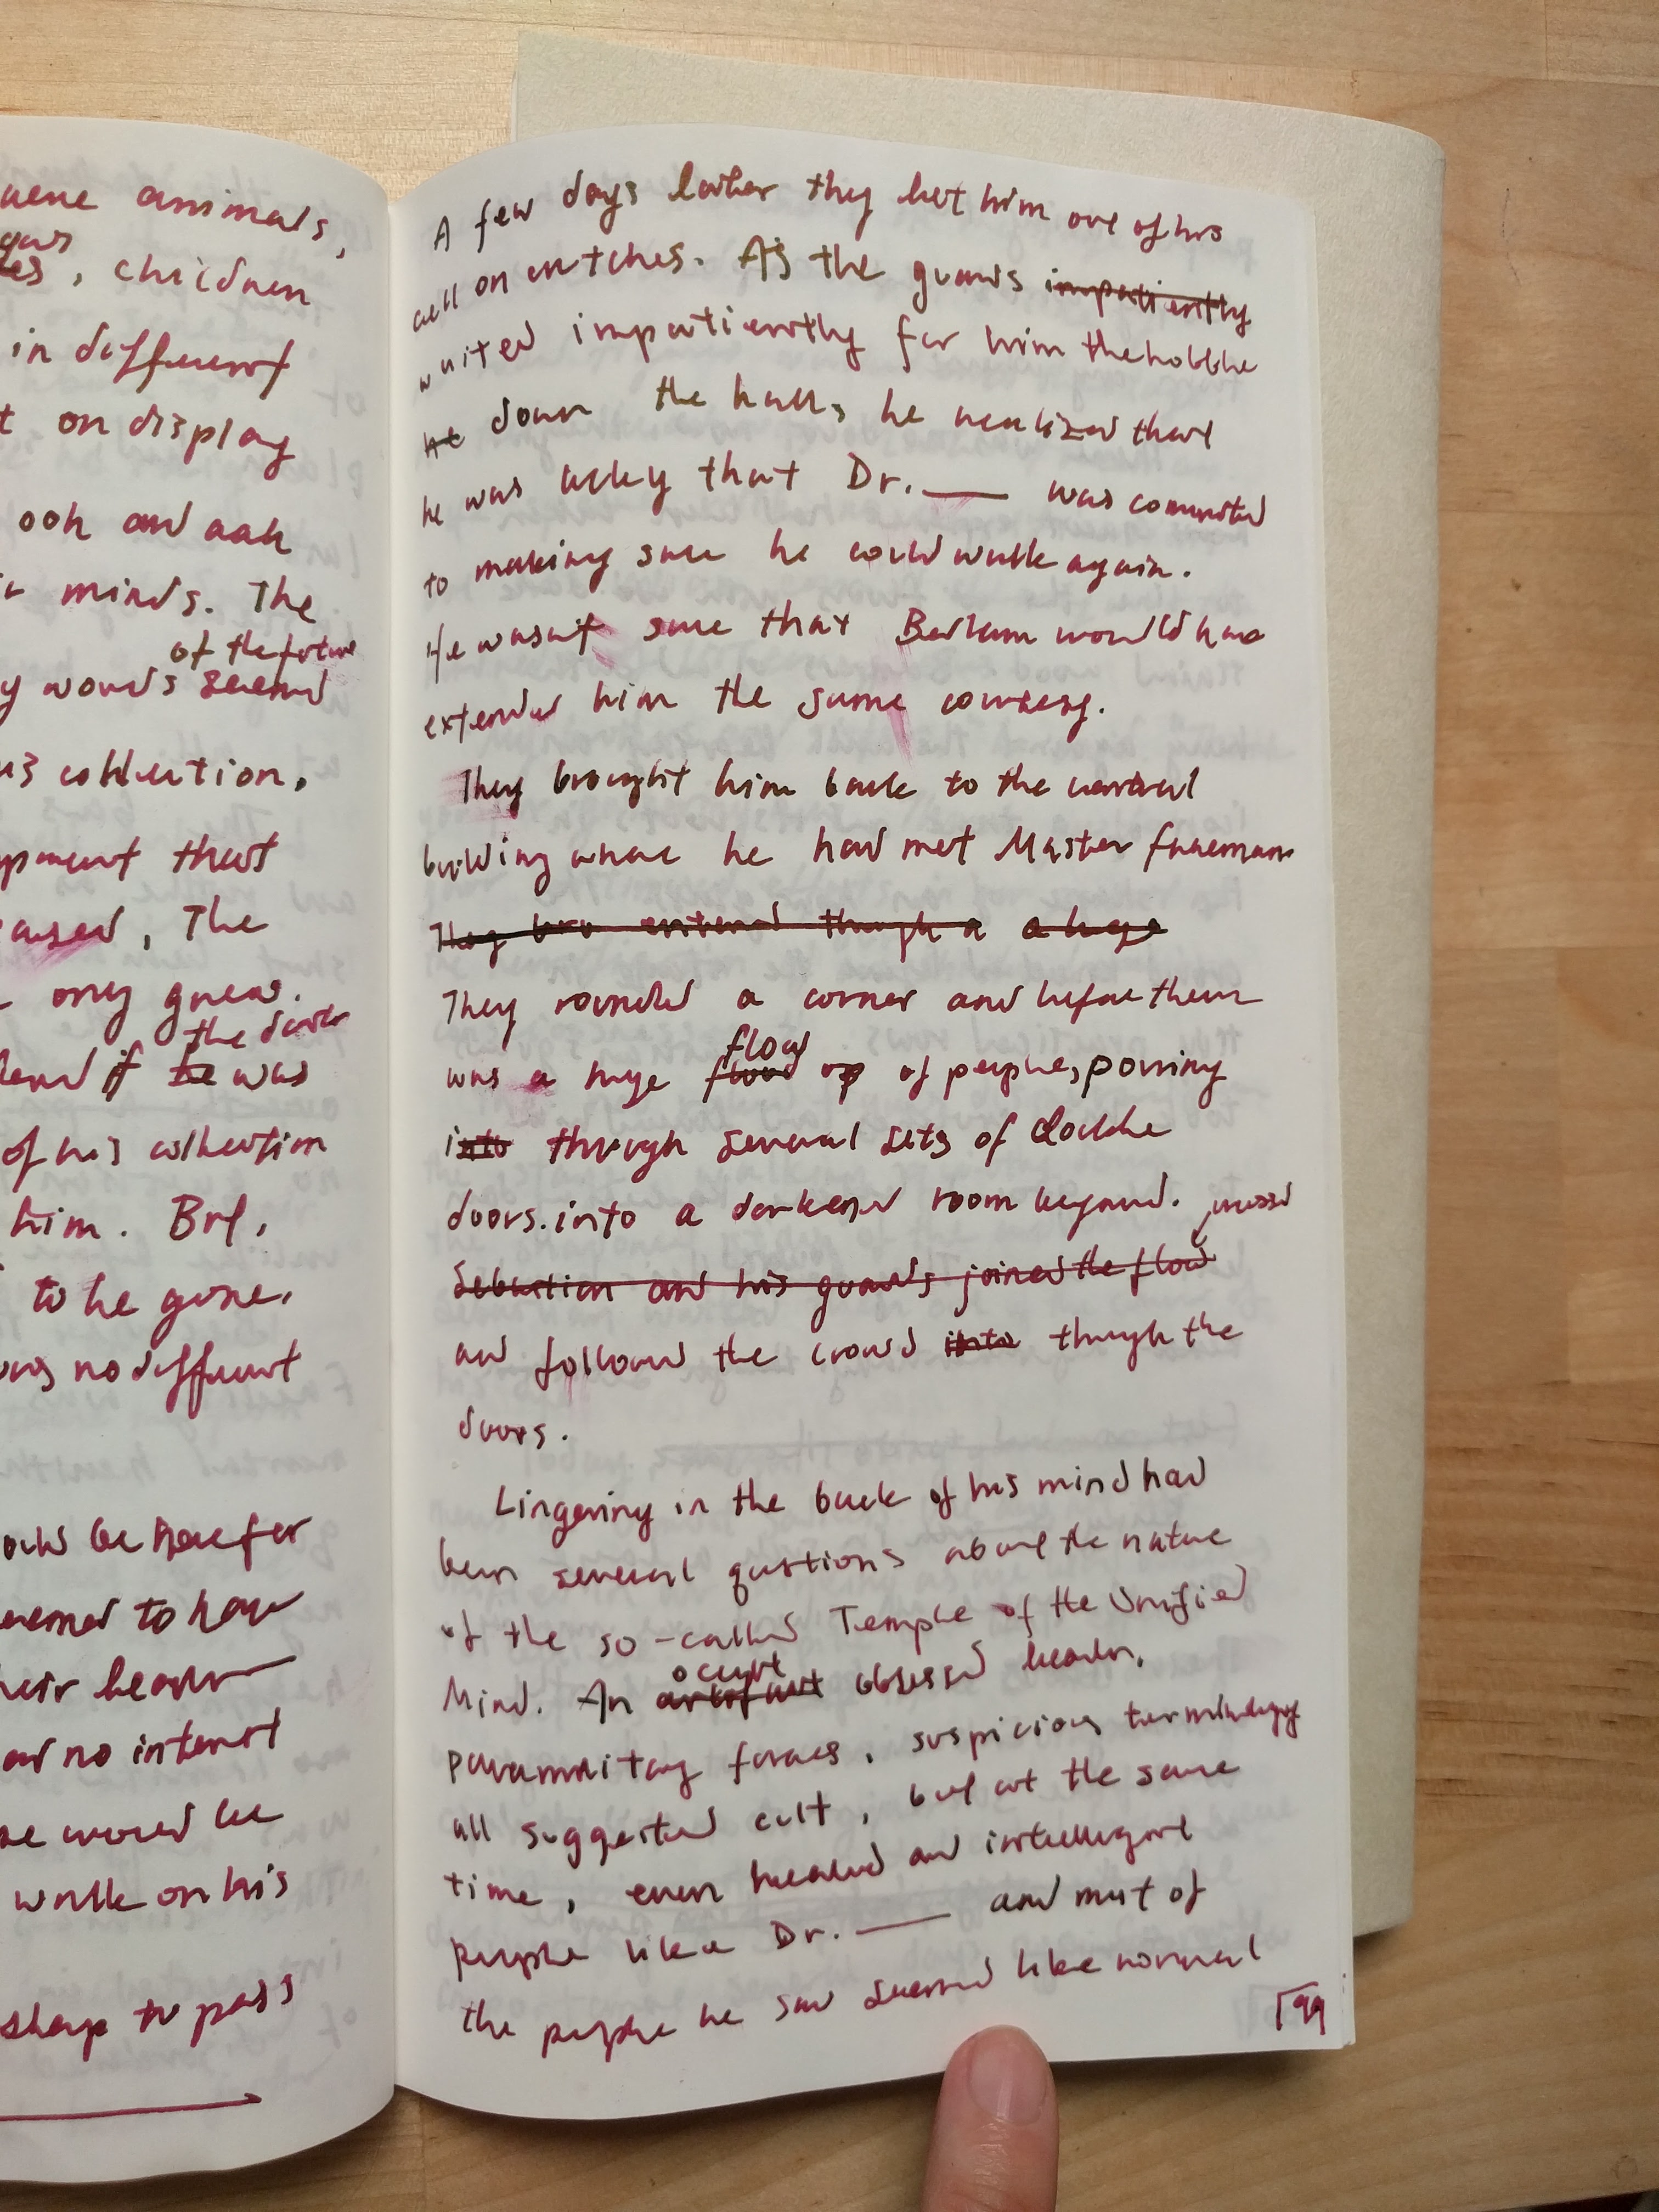 were animals,
, children
in different
t on display
ooh and aah
minds. The
of the future
y words seemed
collection.
that
, The
only guess.
the doctor
if he was
of his collection
him. But,
to be gone.
no different
be here for
seemed to have
their leader
no interest
would be
walk on his
sharp to pass
A few days later they let him out of his
cell on crutches. As the guards impatiently
waited impatiently for him to hobble
he down the halls he realized that
he was lucky that Dr. ___ was committed
to making sure he could walk again.
He wasn't sure that Bedlam would have
extended him the same courtesy.
They brought him back to the central
building where he had met Master Freeman
They bro entered through a a huge
They rounded a corner and before them
flow
was a huge flood of of people, pouring
into through several sets of double
doors. into a darkened room beyond. passed
Sebastian and his guards joined the flow
and followed the crowd into through the
doors.
Lingering in the back of his mind had
been several questions about the nature
of the so-called Temple of the Unified
occult
Mind. An artifact obsessed leader,
paramilitary forces, suspicious terminology
all suggested cult, but at the same
time, even and intelligent
people like Dr. ___ and most of
the people he saw seemed like normal
199